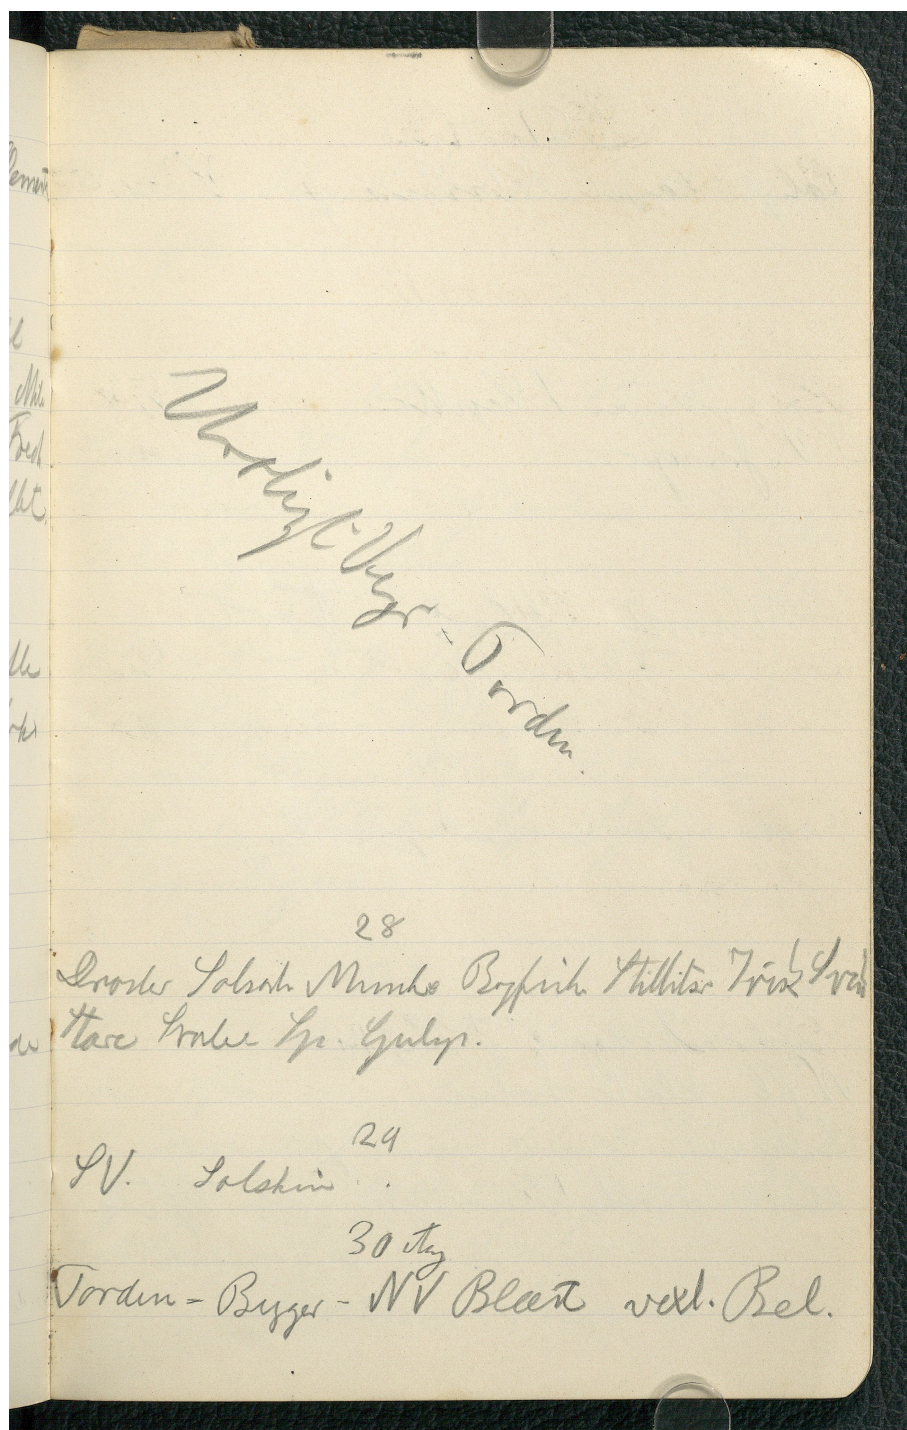 Uroligt Vejr - Torden.
28
Drosler Solsort Munke Bogfink Stillitser Irisk
Stære Svaler Gulsp.
29
SV. Solskin.
30 Aug
Torden - Byger - NV Blæst vexl. Bel.